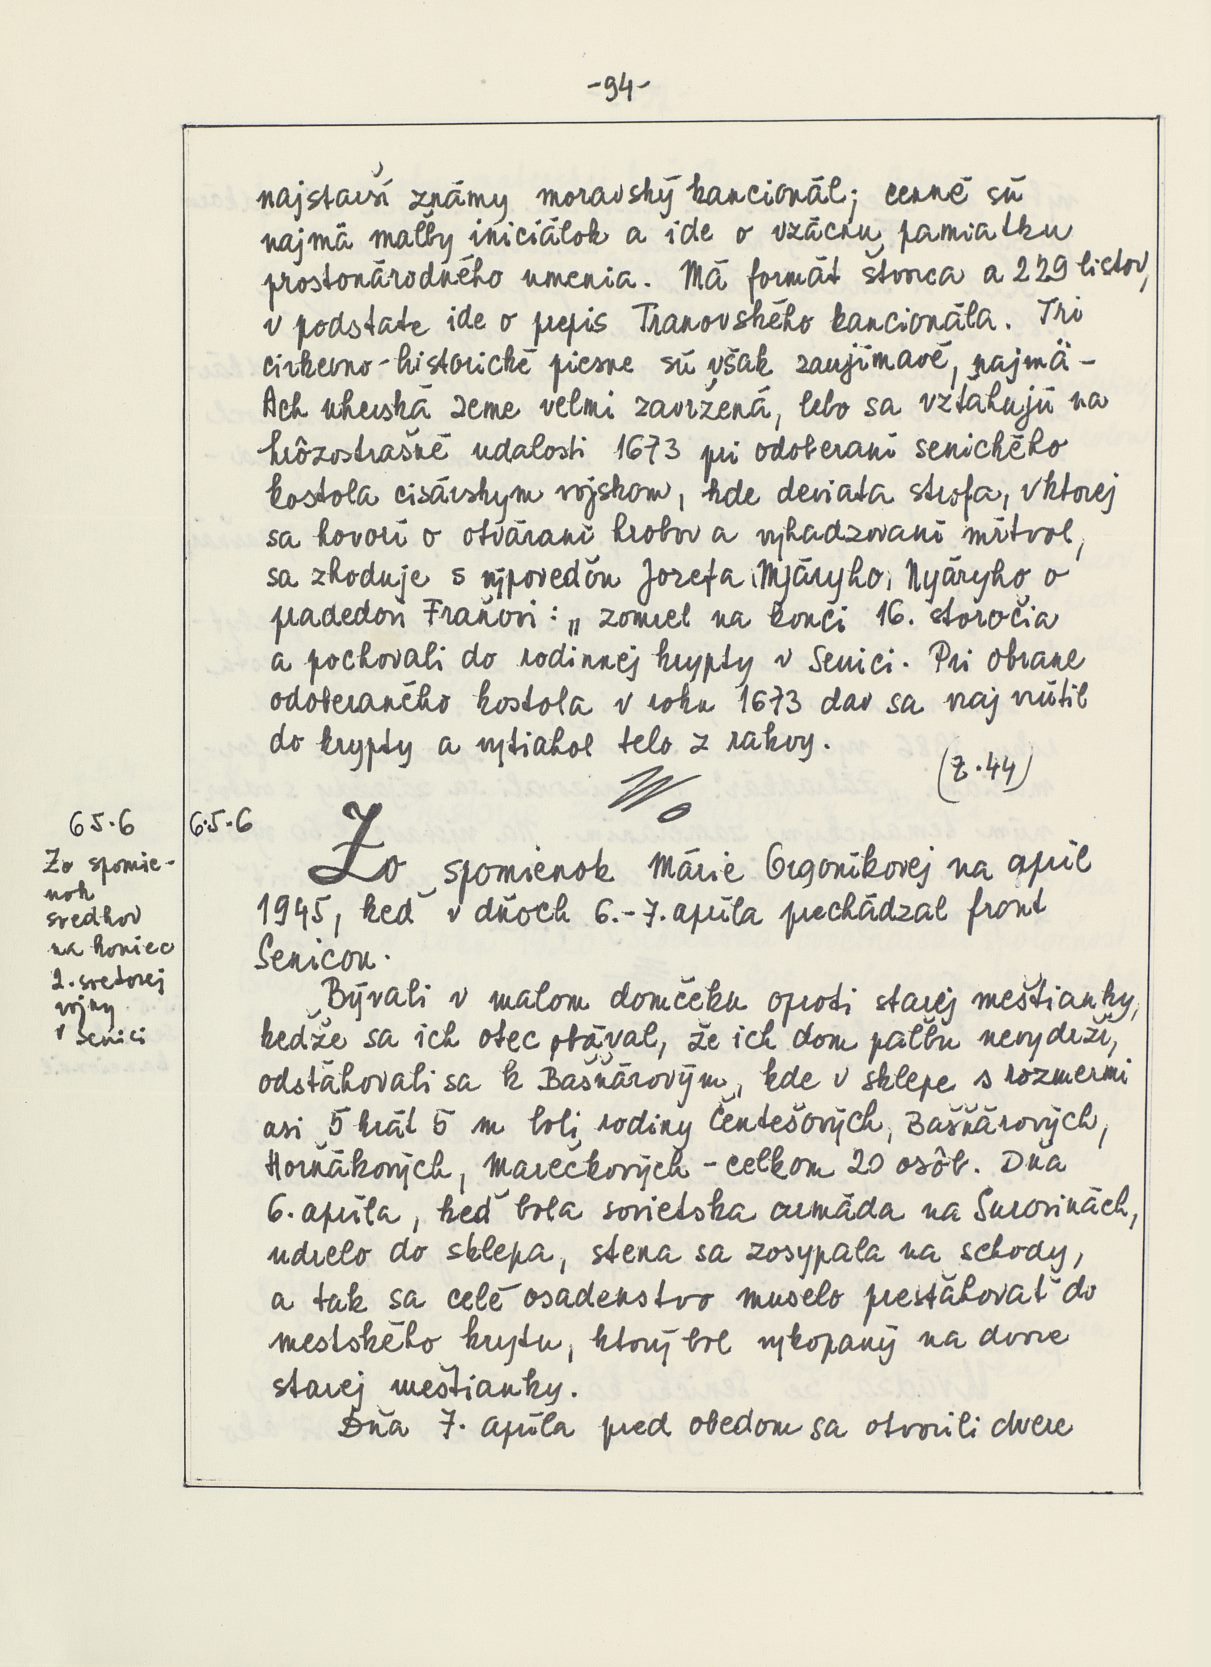 -94-
najstarší známy moravský kancionál; cenné sú
najmä maľby iniciálok a ide o vzácnu pamiatku
prostonárodného umenia. Má formát štvorca a 229 listov,
v podstate ide o prepis Tranovského kancionála. Tri
cirkevno-historické piesne sú však zaujímavé, najmä -
Ach uherská zeme velmi zavržená, lebo sa vzťahujú na
hrôzostrašné udalosti 1673 pri odoberaní senického
kostola cisárskym vojskom, kde deviata strofa, v ktorej
sa hovorí o otváraní hrobov a vyhadzovaní mŕtvol,
sa zhoduje s výpoveďou Jozefa Mjáryho, Nyáryho o
pradedovi Fraňovi: „zomrel na konci 16. storočia
a pochovali do rodinnej krypty v Senici. Pri obrane
odoberaného kostola v roku 1673 dav sa vraj vrútil
do krypty a vytiahol telo z rakvy.
(Z.44)
65.6
Zo spomie-
nok
svedkov
na koniec
2. svetovej
vojny
v Senici
6.5.6
Zo spomienok Márie Orgoníkovej na apríl
1945, keď v dňoch 6.-7. apríla prechádzal front
Senicou.
Bývali v malom domčeku oproti starej meštianky,
keďže sa ich otec obával, že ich dom paľbu nevydrží,
odsťahovali sa k Bašnárovým, kde v sklepe s rozmermi
asi 5 krát 5 m boli rodiny Čentešových, Bašnárových,
Horňákových, Marečkových - celkom 20 osôb. Dňa
6. apríla, keď bola sovietska armáda na Surovinách,
udrelo do sklepa, stena sa zosypala na schody,
a tak sa celé osadenstvo muselo presťahovať do
mestského krytu, ktorý bol vykopaný na dvore
starej meštianky.
Dňa 7. apríla pred obedom sa otvorili dvere